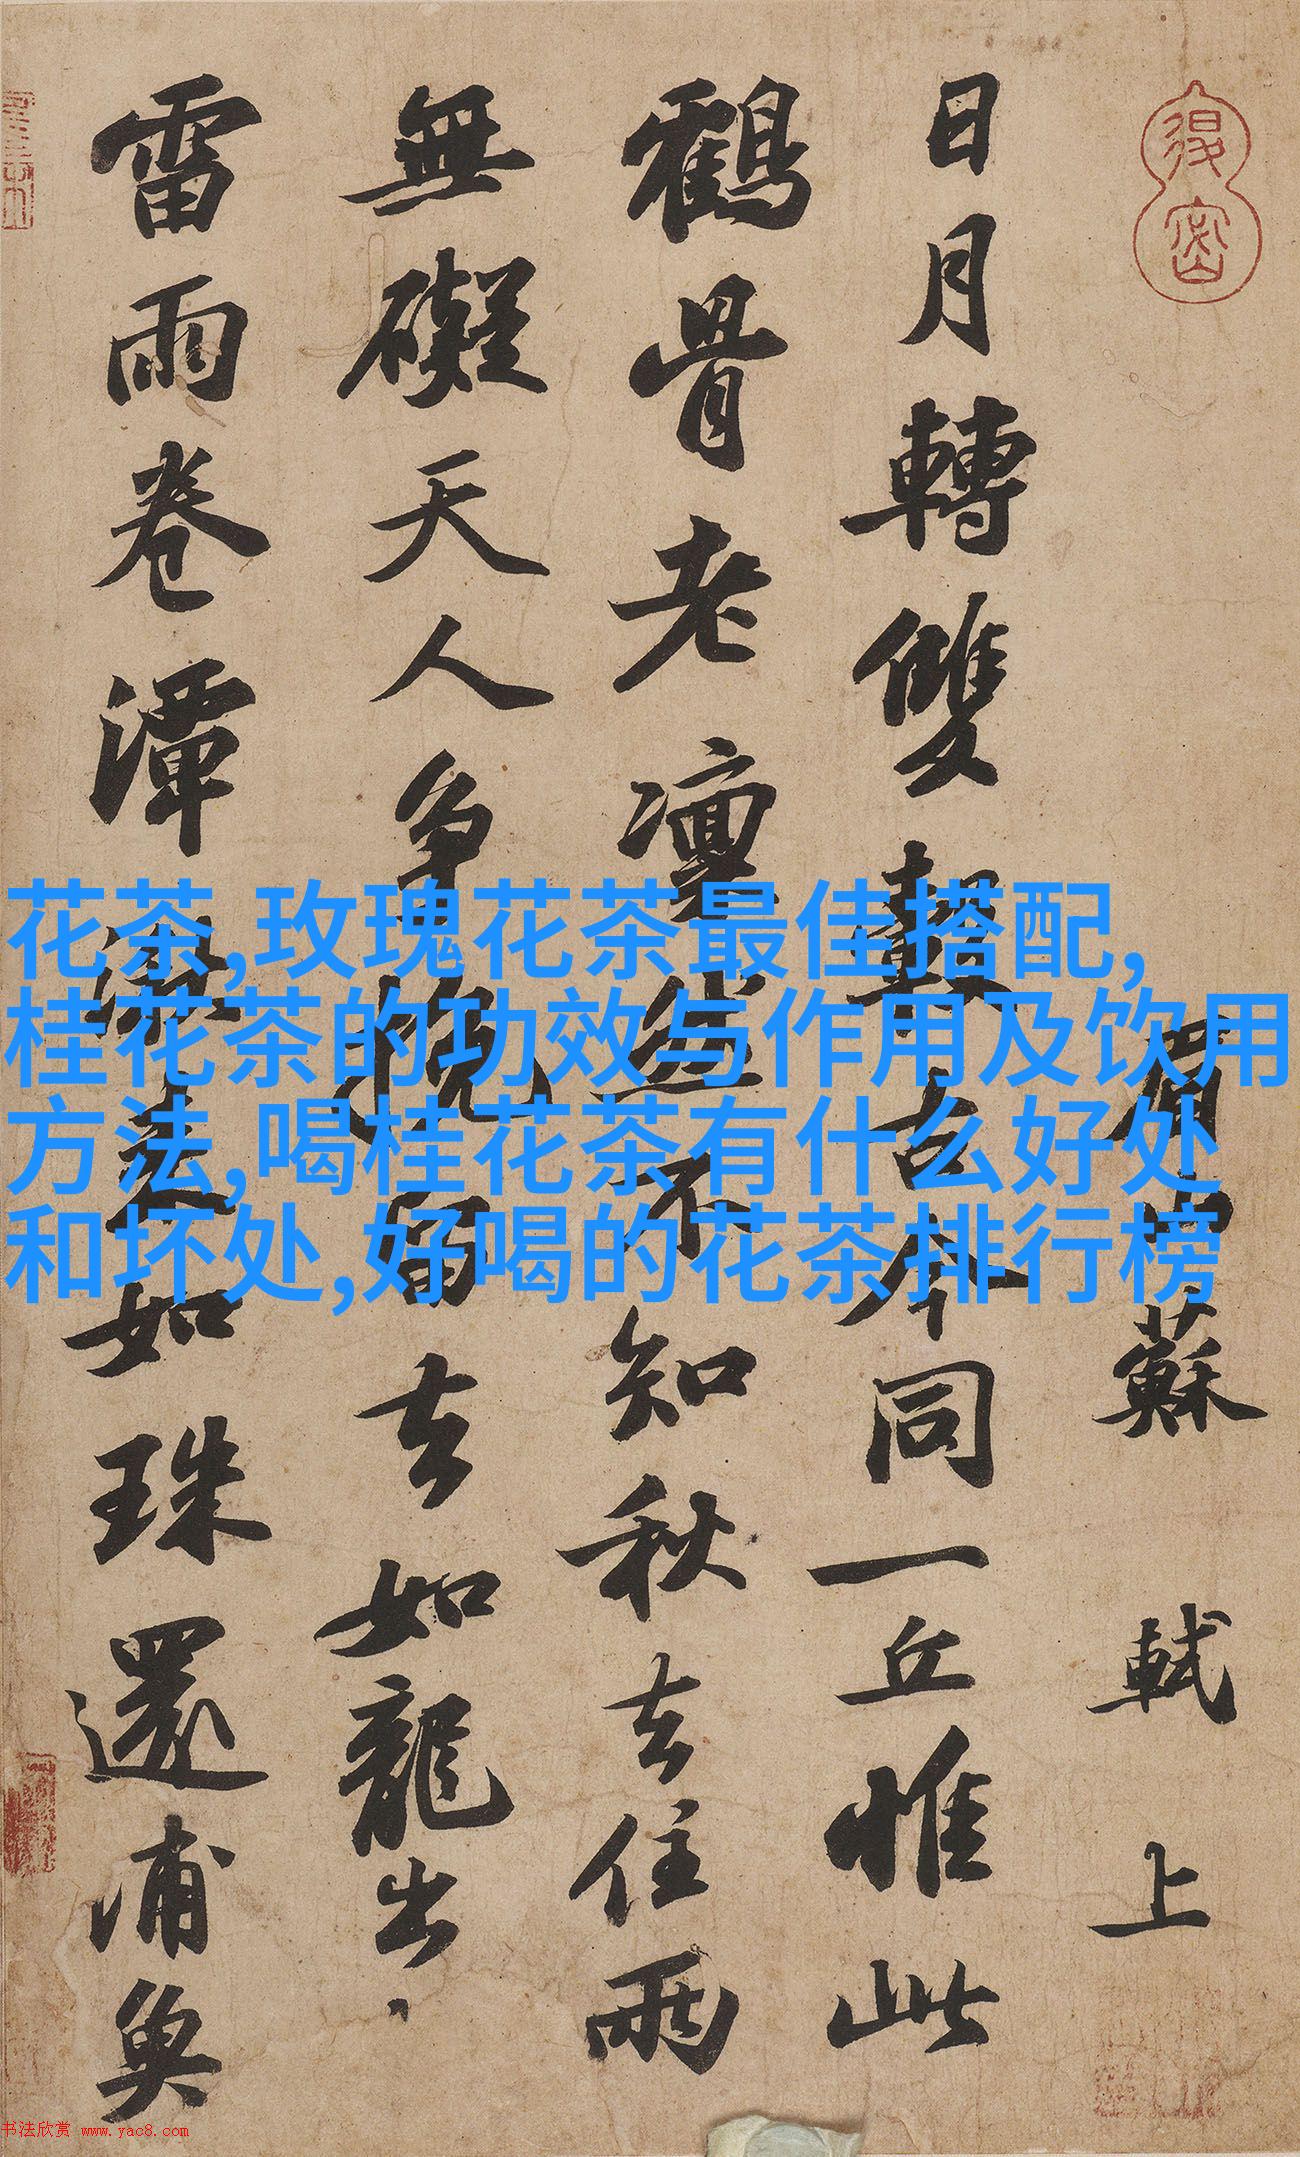 眉山蘇軾上
日月轉雙轂古今同一丘惟此
鶴骨老凜然不知秋去住兩
無礙天人争挽留去如龍出
雷雨卷潭湫来如珠還浦魚
花茶,玫瑰花茶最佳搭配,
桂花茶的功效与作用及饮用
方法,喝桂花茶有什么好处
和坏处,好喝的花茶排行榜
书法欣赏 www.yac8.com